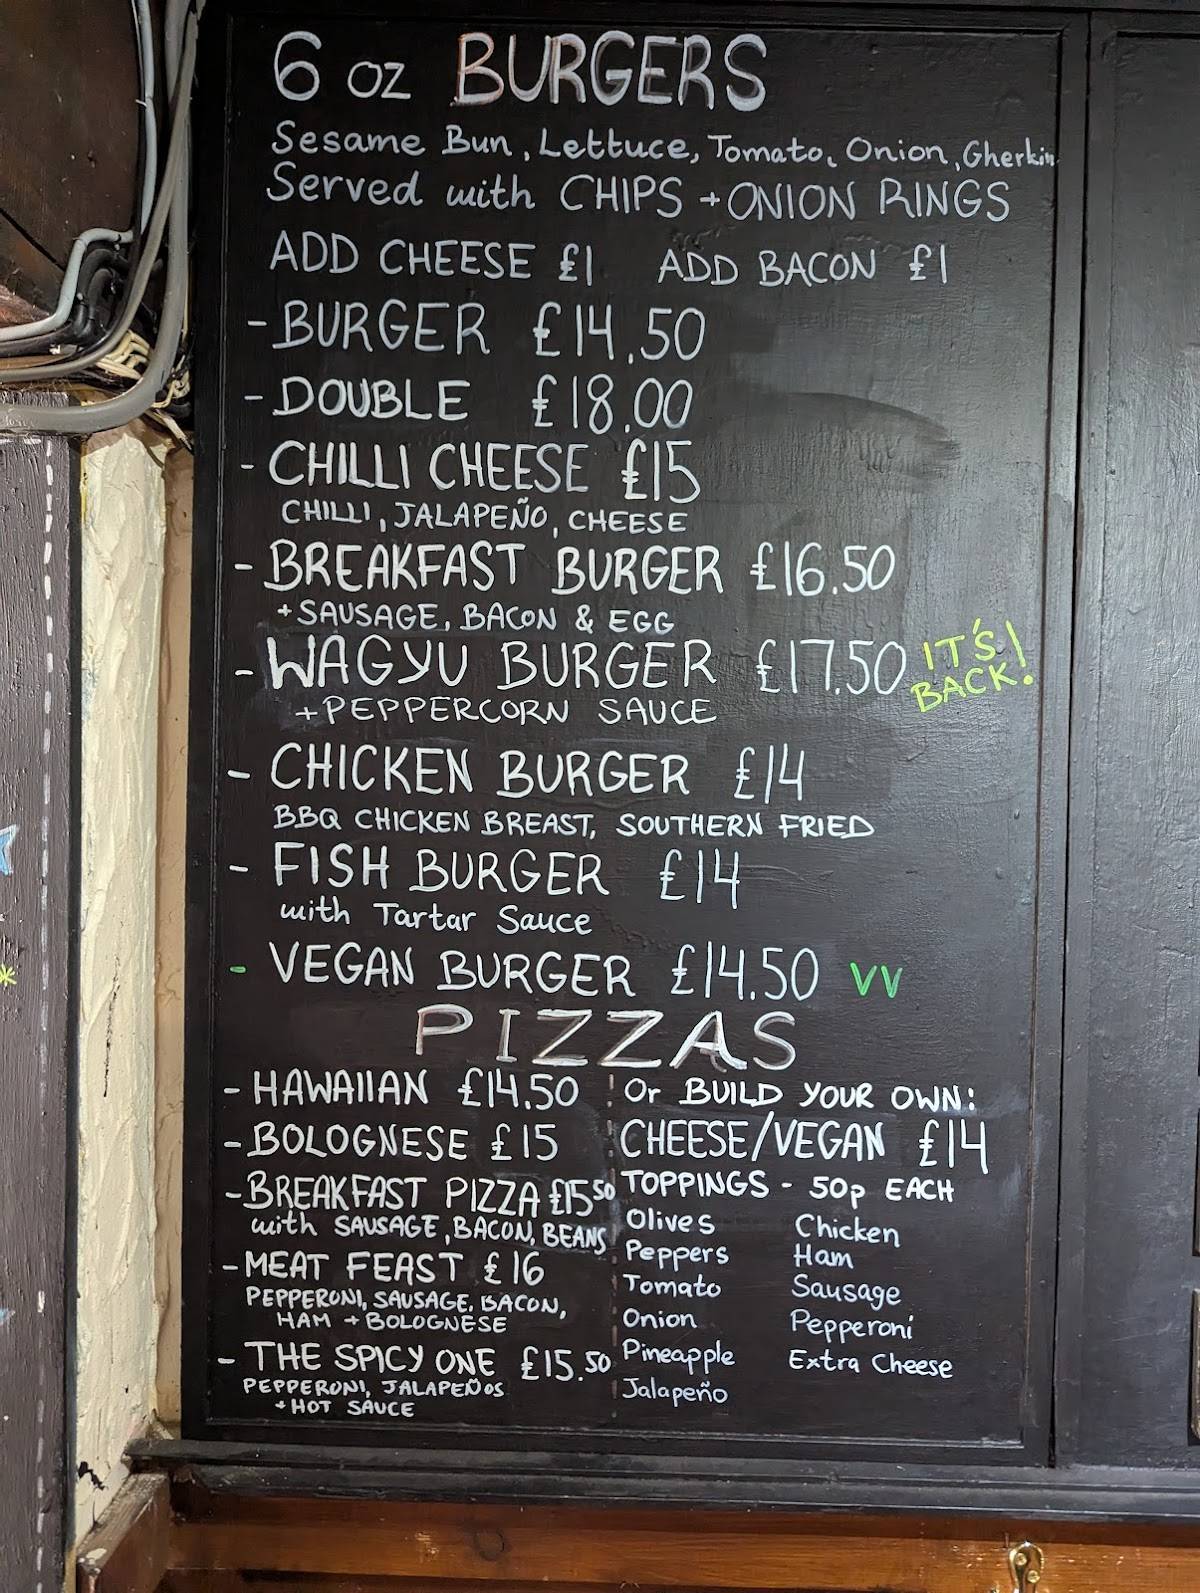 6 oz BURGERS
Sesame Bun, Lettuce, Tomato, Onion, Gherkin
Served with CHIPS + ONION RINGS
ADD CHEESE £1 ADD BACON £1
- BURGER £14.50
- DOUBLE £18.00
- CHILLI CHEESE £15
CHILLI, JALAPEÑO, CHEESE
- BREAKFAST BURGER £16.50
+ SAUSAGE, BACON & EGG
- WAGYU BURGER £17.50 IT'S BACK!
+ PEPPERCORN SAUCE
- CHICKEN BURGER £14
BBQ CHICKEN BREAST, SOUTHERN FRIED
- FISH BURGER £14
with Tartar Sauce
- VEGAN BURGER £14.50 VV
PIZZAS
- HAWAIIAN £14.50
- BOLOGNESE £15
- BREAKFAST PIZZA £15.50
with SAUSAGE, BACON, BEANS
- MEAT FEAST £16
PEPPERONI, SAUSAGE, BACON,
HAM + BOLOGNESE
- THE SPICY ONE £15.50
PEPPERONI, JALAPEÑOS
+ HOT SAUCE
Or BUILD YOUR OWN:
CHEESE/VEGAN £14
TOPPINGS - 50p EACH
Olives
Peppers
Tomato
Onion
Pineapple
Jalapeño
Chicken
Ham
Sausage
Pepperoni
Extra Cheese